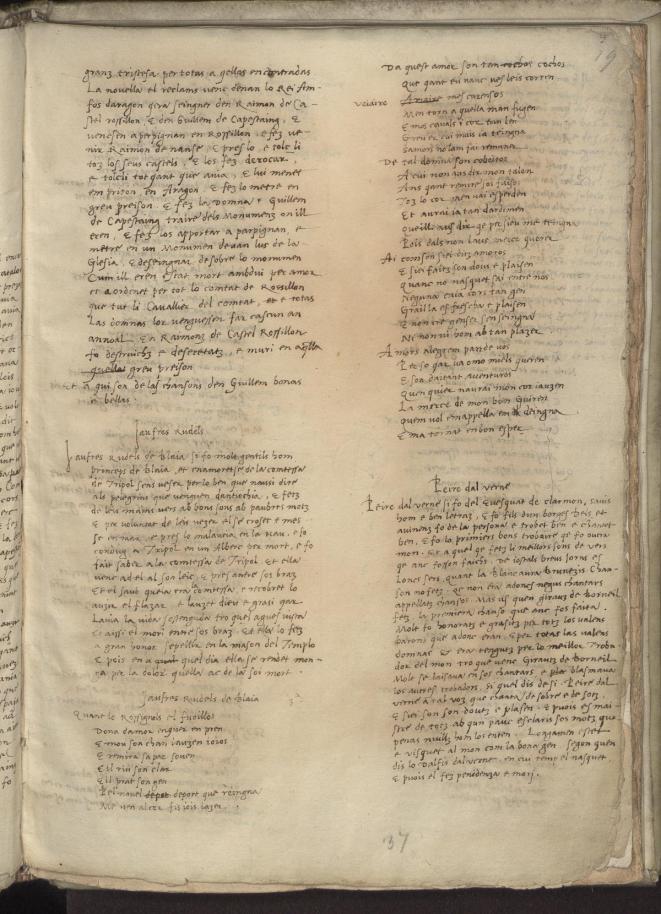 granz tristesa per totas aqellas encontradas
La novella el reclams venc denan lo Rei Am-
fos daragon qera seingner den Raimon de Ca-
stel rossillon, E den Guillem de Capestaing, E
venc sen a perpignan en Rossillon, e fez ve-
nir Raimon denanse, E pres lo, e tolc li
toz los seus castels, E los fez derocar,
e tolc li tot qant que avia, E lui menet
em prison, en Aragon, E fez lo metre en
greu preison. E fez la Domna e Guillem
de Capestaing traire dels Monumenz on ill
eren, E fez los apportar a parpignan, e
metre en un Monumen denan lus de la
Glesia, E deseingnar desobre lo monimen
Cum ill eren estat mort ambdui per amor
et adordenet per tot lo comtat de Rossillon
que tut li Cavallier del comtat, et e totas
Las domnas lor venguessen far cascun an
annoal. E en Raimonz de Castel Rossillon
fo destruichz e deseretatz, e muri en aqlla
quellas greu preison
et aqui son de las chansons den Guillem bonas
e bellas.
Jaufres Rudels
Jaufres Rudels de Blaia si fo molt gentils hom
princeps de Blaia, et enamoret se de la comtessa
de Tripol sens vezer per lo ben que nausi dire
als pelegrins que venguen dantiochia, E fetz
de leis mainz vers ab bons sons ab paubres motz
E per voluntat de leis vezer el se croset e mes
se en mar, e pres lo malavtia en la nau, e fo
condug a Tripol en un Alberc per mort, e fo
fait saber a la comtessa de Tripol et ella
venc ad el al son leic, E pres antre sos braz
Et el saub quela era comtessa, e recobret lo
auzir el flazar e lauzet dieu e grasi qar
Lavia la vida sostenguda tro quel agues vista
Et aissi el mori entre sos braz. Et ella lo fez
a gran honor sepellir en la mason del Templo
E pois en a quel dia ella se rendet mon-
ga per la dolor quella ac de la soi mort.
Jaufres Rudels de Blaia
Quant lo Rossignols el fuoillos
Dona damor enquer en pren
E mou son chan lauzen ioios
E remira sa par soven
El riu son clar
El prat son gen
Pel novel depot deport que reingna
Me ven al cor fis iois iazer.
19
Da quest amor son tan cochos cochos
Que qant eu vauc ves leis corren
veiaire Anaire mes carensos
Men torn a quella man fugen
E mos cavals i cor tan len
Greu er cui mais la teingna
Samors no lam fai remaner
De tal domna son cobeitos
A cui non aus dir mon talan
Ans qant remire sas faisos
Toz lo cor maen vai esperden
Et aurai ia tan dardimen
Queill aus dir qe per sieu me teingna
Pois dals non laus merce querer
Ai com son siei diz amoros
E siei faitz son dolz e plaisen
Quanc no nasquet sai entre nos
Neguna caia cors tan gen
Grail la es fresca be plaisen
E non cre genser sen seingna
Ni non vi hom ab tan plazer
Amors alegrem part de vos
Per so qar vaomo miells queren
E son daitant aventuros
Quenquier naurai mon cor iauzen
La merce de mon bon Guiren
Quem vol em appella em deingna
E ma tornat en bon esper
Peire dal verne
Peire dal verne si fo del Evesquat de clarmon, savis
hom e ben letraz, E fo fils dun borges. Beis et
avinenz fo de la persona e trobet ben e chantet
ben, E fo lo primiers bons trobaire qe fo outra
mon. Et aquel qe fetz li meillors sons de vers
qe anc fosson faichs. De iostals breus iorns es
Lonc sers, quant la blanc aura brunezis. Chan-
son no fetz, Qe non era adoncs negus chantars
appellatz chansos. Mas vers quen Giraus de Borneil
fetz la premiera chanso que anc fos faita.
Molt fo honoratz e grasitz per totz los valens
barons que adonc eran. E per totas las valens
domnas. E era tengutz per lo meillor Troba-
dor del mon tro que venc Girautz de Borneil
Mole se laisava en sos chantars e blasmava
los autres trobadors, si quel dis de si. Peire dal
verne a tal voz que chanta desobre e de sotz.
E siei son son doutz e plasen. E puois es mai-
stre de totz ab qun pauc esclaris sos motz que
penas nuillz hom los enten. Longamen estet
e visquet al mon com la bona gen, segon quen
dis lo Dalfis dalverne, en cui temp el nasquet
E puois el fez penedenza e mori.
37